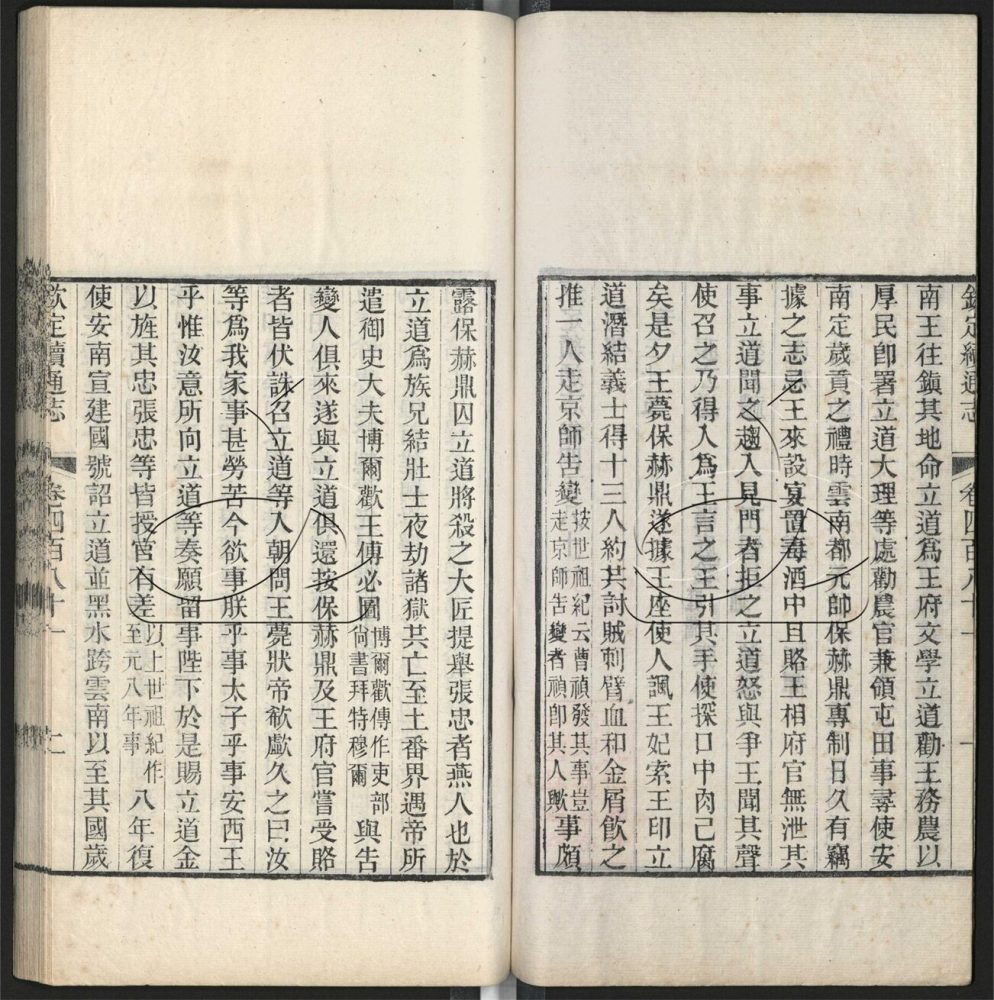 欽定續通志
卷四百八十一
南王往鎭其地命立道爲王府文學立道勸王務農以
厚民卽署立道大理等處勸農官兼領屯田事尋使安
南定歲貢之禮時雲南都元帥保赫鼎專制日久有竊
據之志忌王來設宴置毒酒中且賂王相府官無泄其
事立道聞之趨入見門者拒之立道怒與爭王聞其聲
使召之乃得入爲王言之王引其手使探口中肉已腐
矣是夕王薨保赫鼎遂據王座使人諷王妃索王印立
道潛結義士得十三人約共討賊刺臂血和金屑飲之
推一人走京師告變按世祖紀云曹禎發其事豈
走京師告變者禎卽其人歟事頗
露保赫鼎囚立道將殺之大匠提舉張忠者燕人也於
立道爲族兄結壯士夜劫諸獄共亡至土番界遇帝所
遣御史大夫博爾歡王傅必圖博爾歡傳作吏部
尙書拜特穆爾與告
變人俱來遂與立道俱還按保赫鼎及王府官嘗受賂
者皆伏誅召立道等入朝問王薨狀帝欷歔久之曰汝
等爲我家事甚勞苦今欲事朕乎事太子乎事安西王
乎惟汝意所向立道等奏願留事陛下於是賜立道金
以旌其忠張忠等皆授官有差以上世祖紀作
至元八年事八年復
使安南宣建國號詔立道並黑水跨雲南以至其國歲
欽定續通志
卷四百八十一